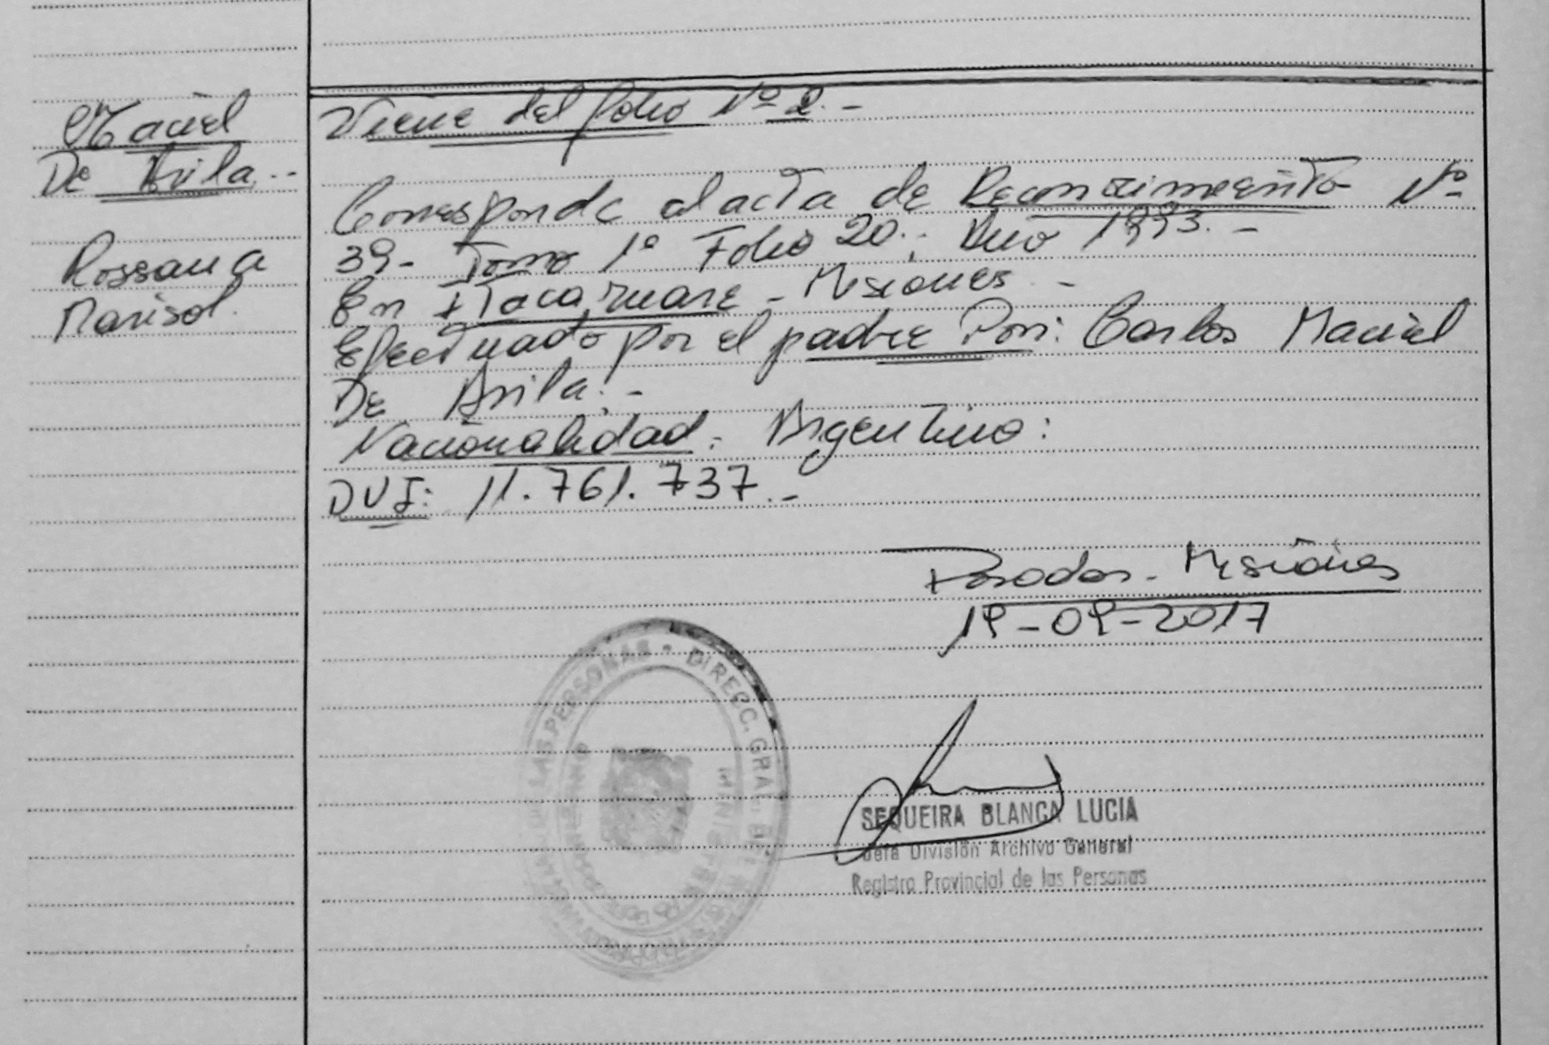 Maciel
De Avila.-
Rossana
Marisol.
Viene del folio Nº 2.-
Corresponde al acta de Reconocimiento Nº
39- Tomo 1º Folio 20.- Año 1993.-
En Itacaruare - Misiones -
Efectuado por el padre Don: Carlos Maciel
De Avila.-
Nacionalidad: Argentino:
DNI: 11.761.737.-
Posadas - Misiones
19-09-2017
DIRECC. GRAL. DEL REGISTRO PROVINCIAL DE LAS PERSONAS
MINISTERIO DE GOBIERNO
SEQUEIRA BLANCA LUCIA
Jefa División Archivo General
Registro Provincial de las Personas